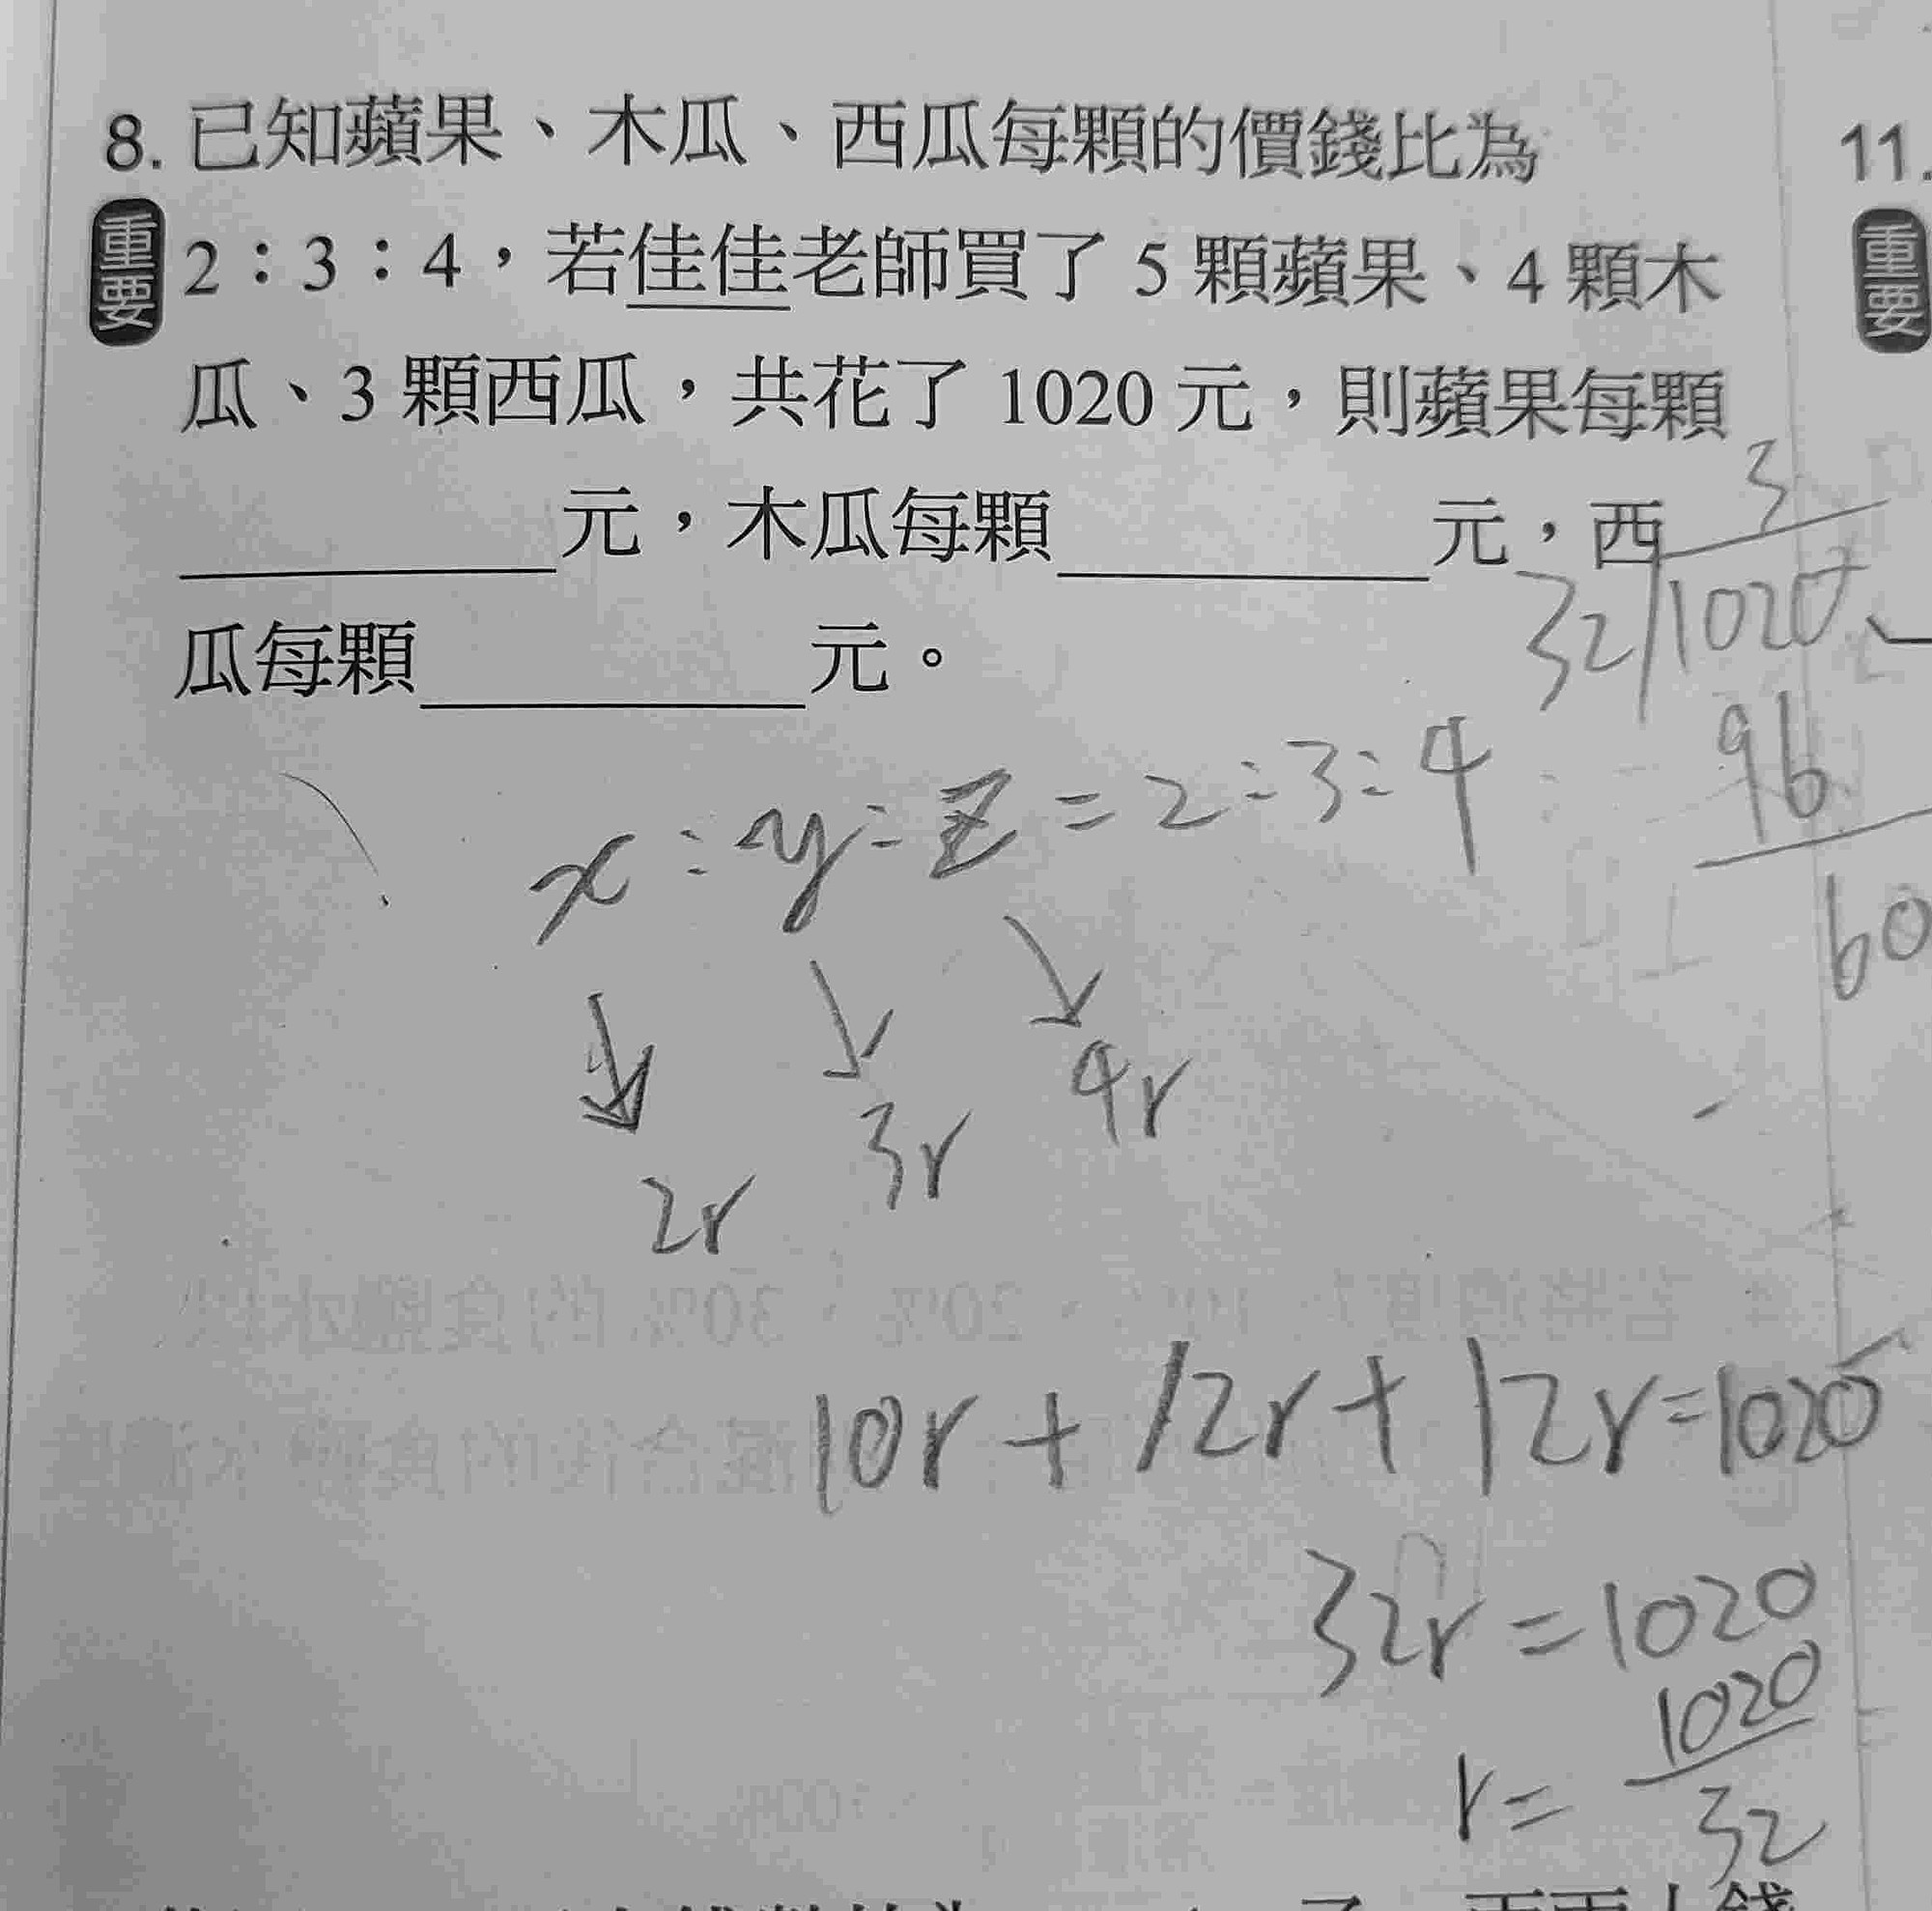 8. 已知蘋果、木瓜、西瓜每顆的價錢比為
重要
2：3：4，若佳佳老師買了 5 顆蘋果、4 顆木
瓜、3 顆西瓜，共花了 1020 元，則蘋果每顆
元，木瓜每顆 元，西
瓜每顆 元。
11.
重要
3
32 1020
96
60
x : y : z = 2 : 3 : 4
2r 3r 4r
10r + 12r + 12r = 1020
32r = 1020
r = 1020/32